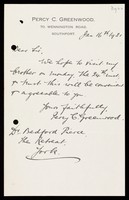 PERCY C. GREENWOOD.
SOUTHPORT.
Jan 16th
Dear Sir,
We hope to visit my
brother on Sunday the 20th inst
& trust this will be convenient &
agreeable to you
Yours faithfully
Percy C. Greenwood
Dr Bedford Pierce
The Retreat
York